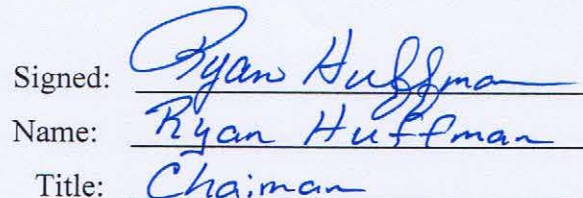 Signed: Ryan Huffman
Name: Ryan Huffman
Title: Chaiman